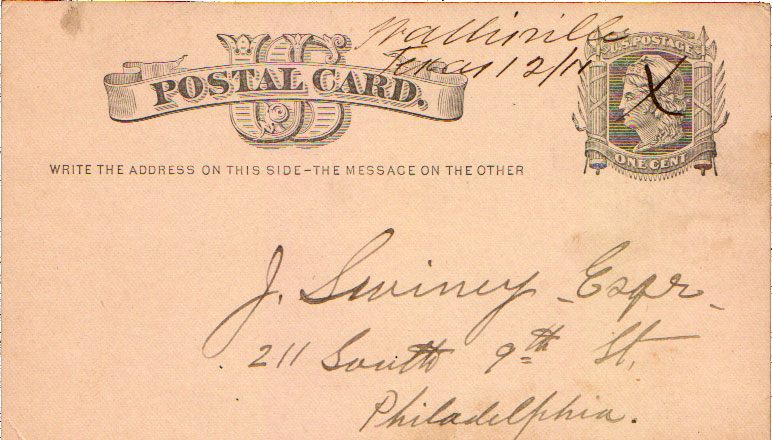 Wallisville
Texas 12/11
U.S. POSTAGE
US
POSTAL CARD.
X
ONE CENT
WRITE THE ADDRESS ON THIS SIDE-THE MESSAGE ON THE OTHER
J. Swiney Esqr
211 South 9th St.
Philadelphia.